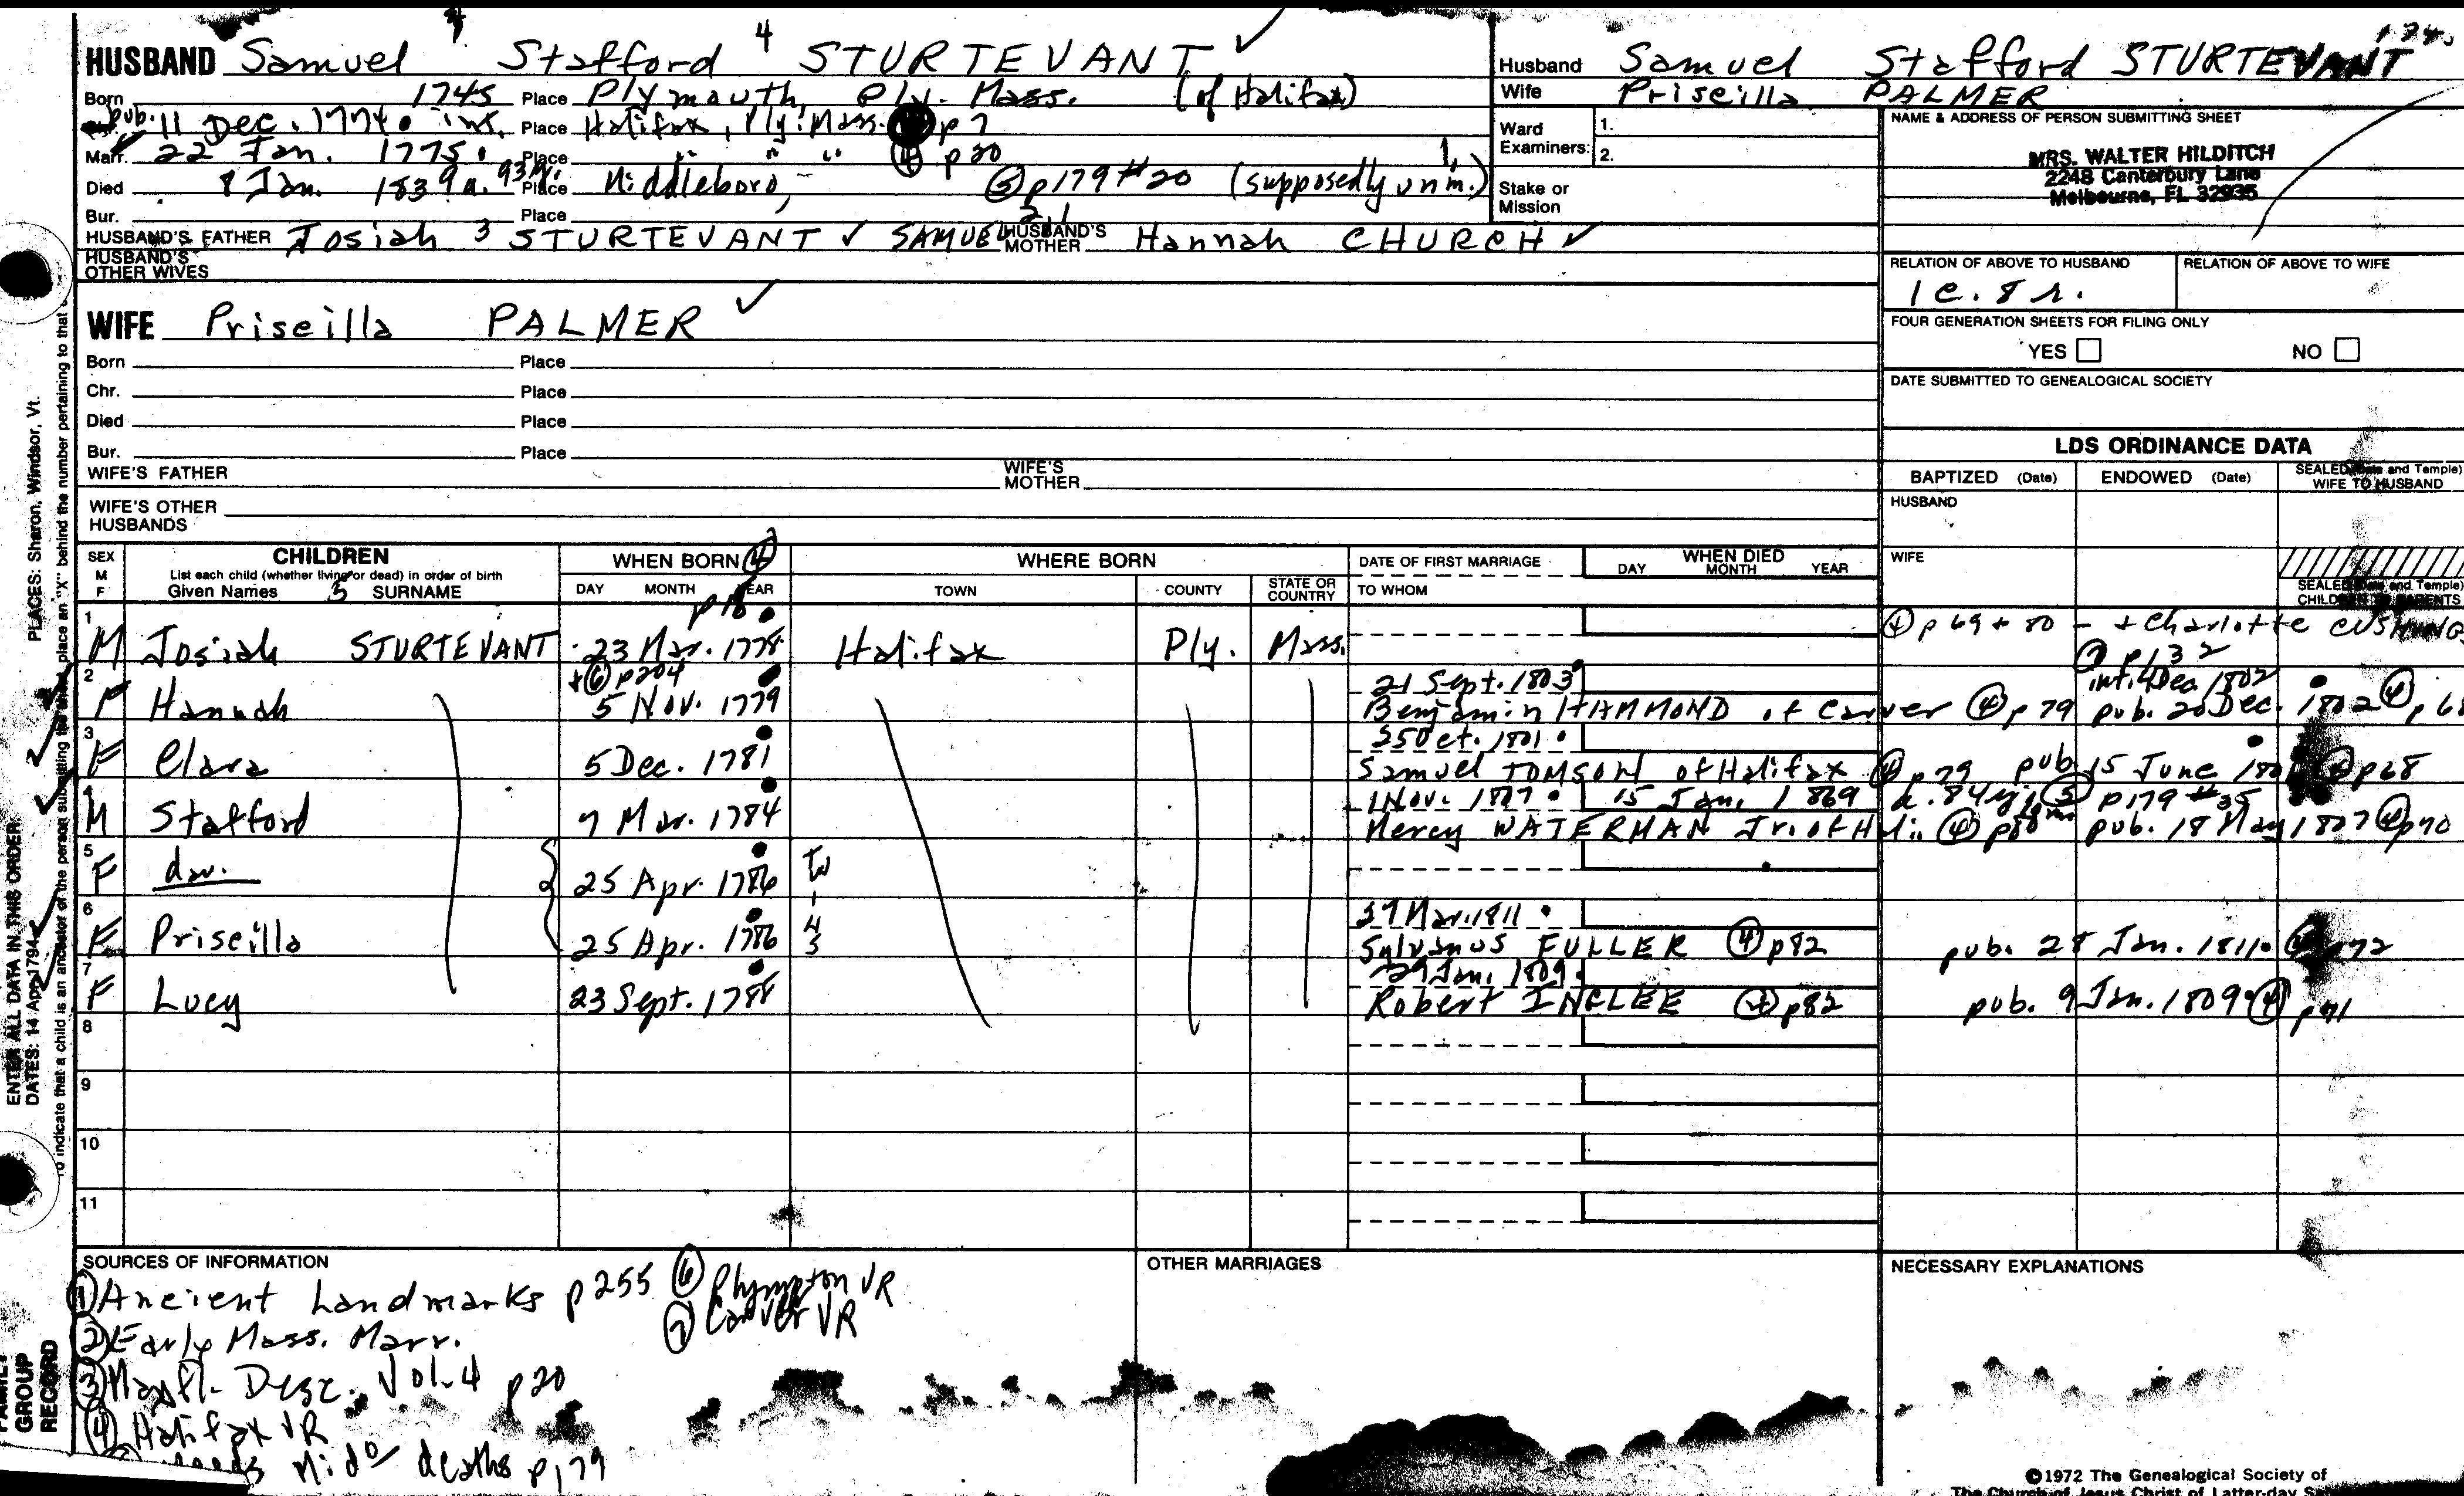 HUSBAND Samuel 4 Stafford 4 STURTEVANT ✓
Born 1745 Place Plymouth, Ply. Mass. (of Halifax)
pub. 11 Dec. 1774. int. Place Halifax, Ply. Mass. p 7
Marr. 22 Jan. 1775. Place " " " ④ p 20
Died 8 Jan. 1839 a. 93 yr. Place Middleboro, ⑤ p179 #20 (supposedly unm.)
Bur. Place
HUSBAND'S FATHER Josiah 3 STURTEVANT ✓ SAMUEL 2,1 HUSBAND'S MOTHER Hannah CHURCH ✓
HUSBAND'S OTHER WIVES
Husband Samuel Stafford STURTEVANT
Wife Priscilla PALMER
Ward Examiners: 1.
2.
Stake or Mission
NAME & ADDRESS OF PERSON SUBMITTING SHEET
MRS. WALTER HILDITCH
2248 Canterbury Lane
Melbourne, FL 32935
RELATION OF ABOVE TO HUSBAND RELATION OF ABOVE TO WIFE
1c. 8 r.
FOUR GENERATION SHEETS FOR FILING ONLY
YES NO
DATE SUBMITTED TO GENEALOGICAL SOCIETY
WIFE Priscilla PALMER ✓
Born Place
Chr. Place
Died Place
Bur. Place
WIFE'S FATHER WIFE'S MOTHER
WIFE'S OTHER HUSBANDS
LDS ORDINANCE DATA
BAPTIZED (Date) ENDOWED (Date) SEALED (Date and Temple) WIFE TO HUSBAND
HUSBAND
WIFE
SEALED (Date and Temple) CHILDREN TO PARENTS
SEX M F CHILDREN WHEN BORN ④ WHERE BORN DATE OF FIRST MARRIAGE WHEN DIED
List each child (whether living or dead) in order of birth
Given Names 5 SURNAME DAY MONTH YEAR TOWN COUNTY STATE OR COUNTRY TO WHOM DAY MONTH YEAR
p 18
1 M Josiah STURTEVANT 23 Mar. 1778 Halifax Ply. Mass. ④ p 69 + 80 - + Charlotte CUSHING
+⑥ p204 ⑦ p132
2 F Hannah 5 Nov. 1779 21 Sept. 1803 int. 4 Dec. 1802
Benjamin HAMMOND of Carver ④ p 79 pub. 20 Dec. 1802 ④ p 68
3 F Clara 5 Dec. 1781 25 Oct. 1801
Samuel TOMSON of Halifax ④ p 79 pub. 15 June p68
4 M Stafford 7 Mar. 1784 1 Nov. 1827 15 Jan. 1869 ⑤ p179 #35
Mercy WATERMAN Jr. of Hali. ④ p80 pub. 18 May 1827 ④ p70
5 F dau. 25 Apr. 1786 Twins
6 F Priscilla 25 Apr. 1786 27 Mar. 1811
Sylvanus FULLER ④ p82 pub. 28 Jan. 1811 p72
7 F Lucy 23 Sept. 1788 29 Jan. 1809
Robert INGLEE ④ p82 pub. 9 Jan. 1809 ④ p71
8
9
10
11
SOURCES OF INFORMATION
① Ancient Landmarks p 255 ⑥ Plympton VR
② Early Mass. Marr. ⑦ Carver VR
③ Mayfl. Desc. Vol. 4 p 20
④ Halifax VR
Mido deaths p179
OTHER MARRIAGES
NECESSARY EXPLANATIONS
©1972 The Genealogical Society of
The Church of Jesus Christ of Latter-day
ENTER ALL DATA IN THIS ORDER:
DATES: 14 Apr 1794
PLACES: Sharon, Windsor, Vt.
To indicate that a child is an ancestor of the person submitting the sheet, place an "X" behind the number pertaining to that
FAMILY GROUP RECORD